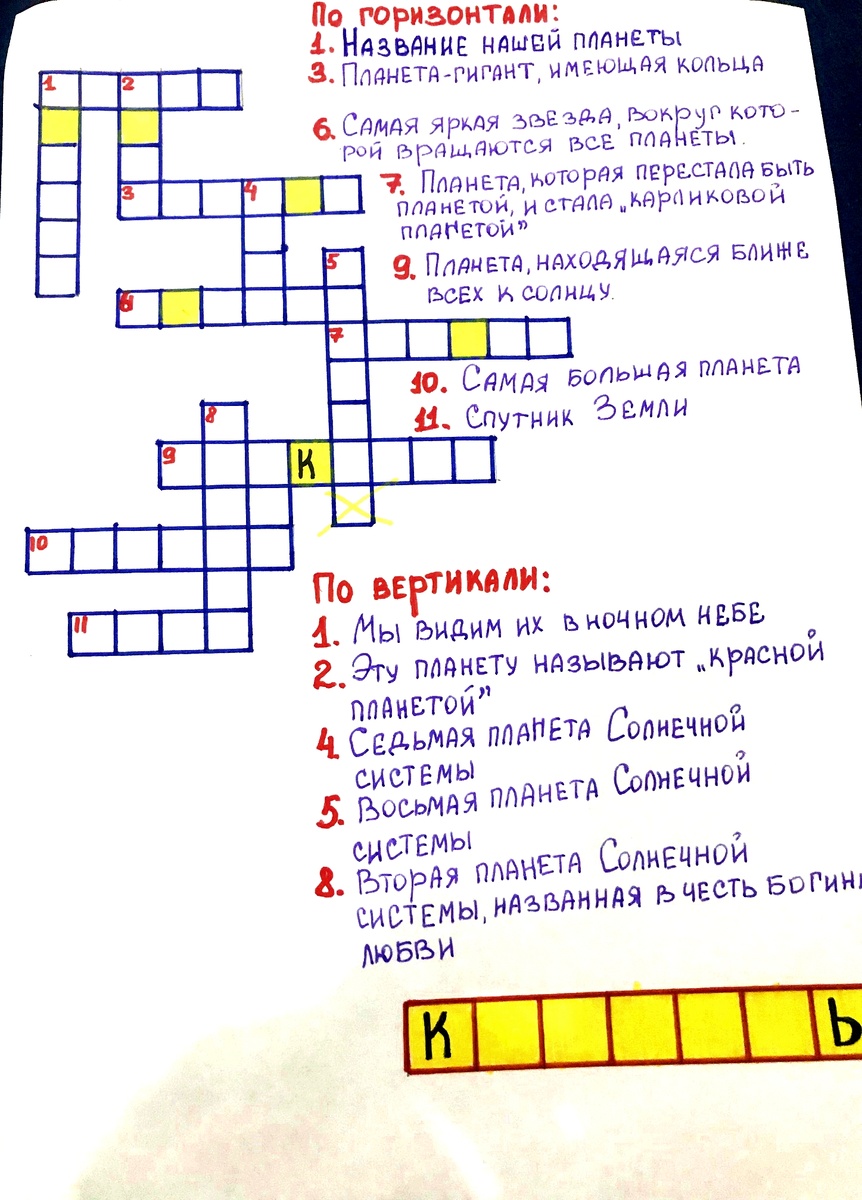 По горизонтали:
1. Название нашей планеты
3. Планета-гигант, имеющая кольца
6. Самая яркая звезда, вокруг кото-
рой вращаются все планеты.
7. Планета, которая перестала быть
планетой, и стала „карликовой
планетой”
9. Планета, находящаяся ближе
всех к солнцу.
10. Самая большая планета
11. Спутник Земли
1 2
3 4
5
6
7
8
9 К
10
11
По вертикали:
1. Мы видим их в ночном небе
2. Эту планету называют „красной
планетой”
4. Седьмая планета Солнечной
системы
5. Восьмая планета Солнечной
системы
8. Вторая планета Солнечной
системы, названная в честь богин
любви
К Ь